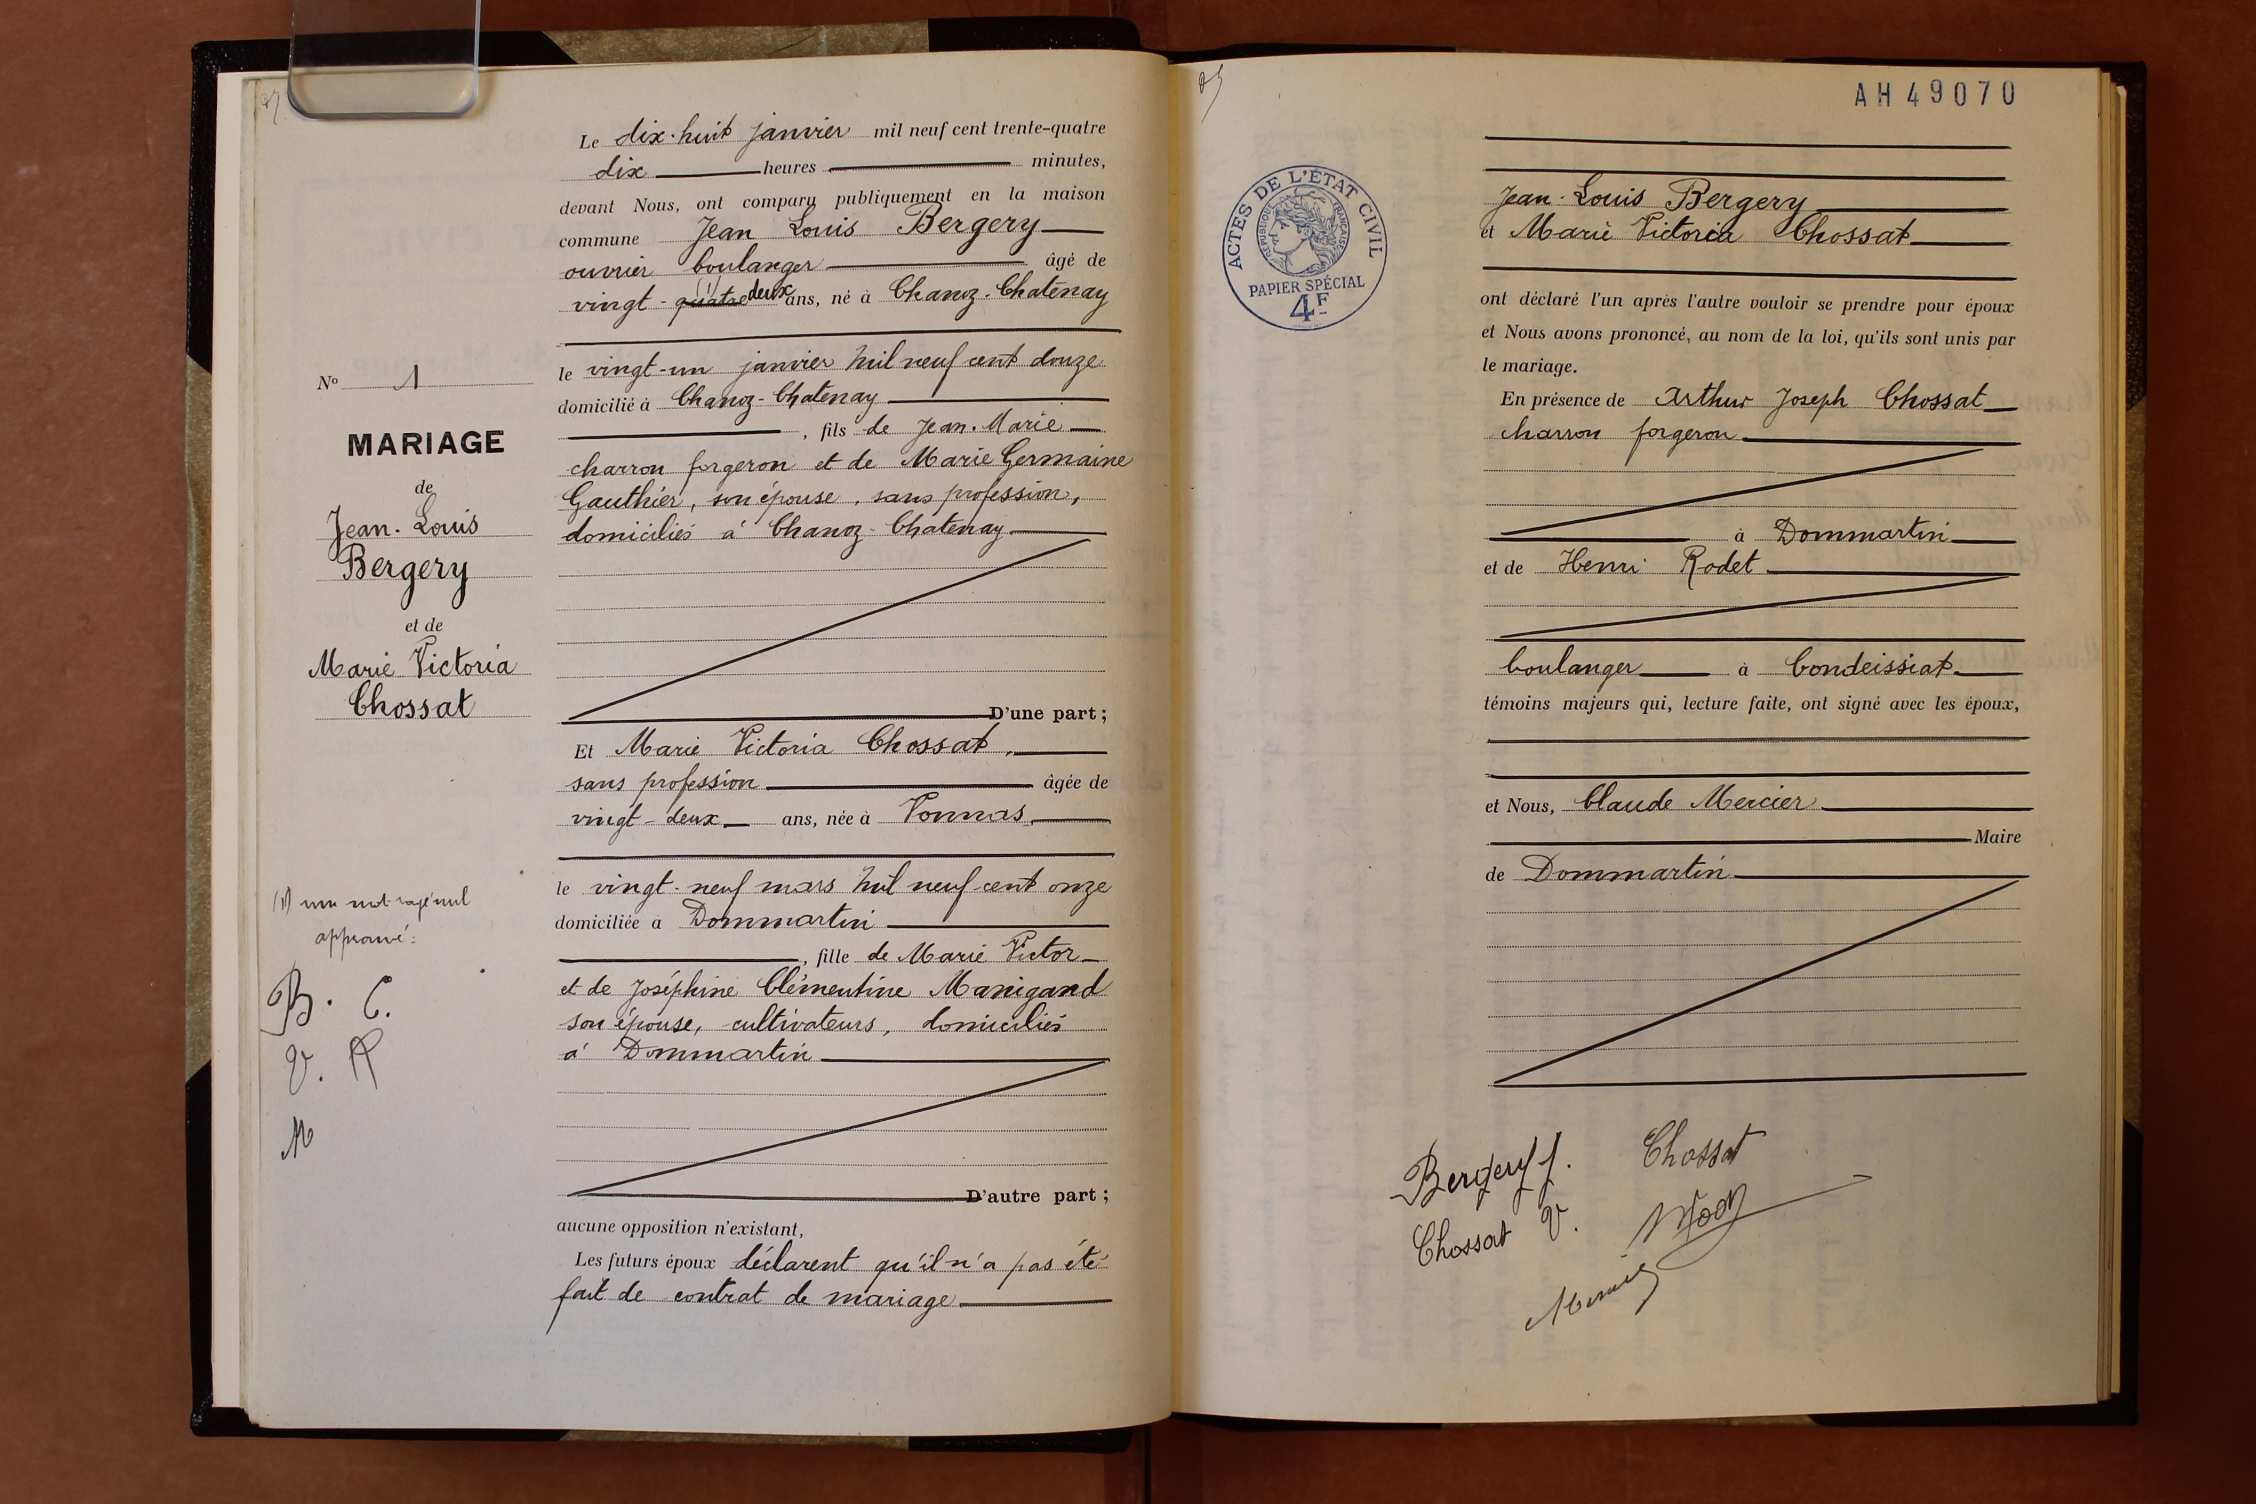 Le dix-huit janvier mil neuf cent trente-quatre
dix heures minutes,
devant Nous, ont comparu publiquement en la maison
commune Jean Louis Bergery
ouvrier boulanger âgé de
vingt-quatre deux ans, né à Chanoz-Chatenay
le vingt-un janvier mil neuf cent douze
domicilié à Chanoz-Chatenay
, fils de Jean-Marie
charron forgeron et de Marie Germaine
Gauthier, son épouse, sans profession,
domiciliés à Chanoz-Chatenay
D'une part ;
Et Marie Victoria Chossat,
sans profession âgée de
vingt-deux ans, née à Vonnas
le vingt-neuf mars mil neuf cent onze
domiciliée à Dommartin
, fille de Marie Victor
et de Joséphine Clémentine Manigand
son épouse, cultivateurs, domiciliés
à Dommartin
D'autre part ;
aucune opposition n'existant,
Les futurs époux déclarent qu'il n'a pas été
fait de contrat de mariage
No 1
MARIAGE
de
Jean-Louis
Bergery
et de
Marie Victoria
Chossat
(1) un mot rayé nul
approuvé :
B. C.
V. R
M
AH49070
ACTES DE L'ÉTAT CIVIL
RÉPUBLIQUE FRANÇAISE
PAPIER SPÉCIAL
4F
Jean-Louis Bergery
et Marie Victoria Chossat
ont déclaré l'un après l'autre vouloir se prendre pour époux
et Nous avons prononcé, au nom de la loi, qu'ils sont unis par
le mariage.
En présence de Arthur Joseph Chossat
charron forgeron
à Dommartin
et de Henri Rodet
boulanger à Condeissiat
témoins majeurs qui, lecture faite, ont signé avec les époux,
et Nous, Claude Mercier
Maire
de Dommartin
Bergery J. Chossat
Chossat V.
Mercier